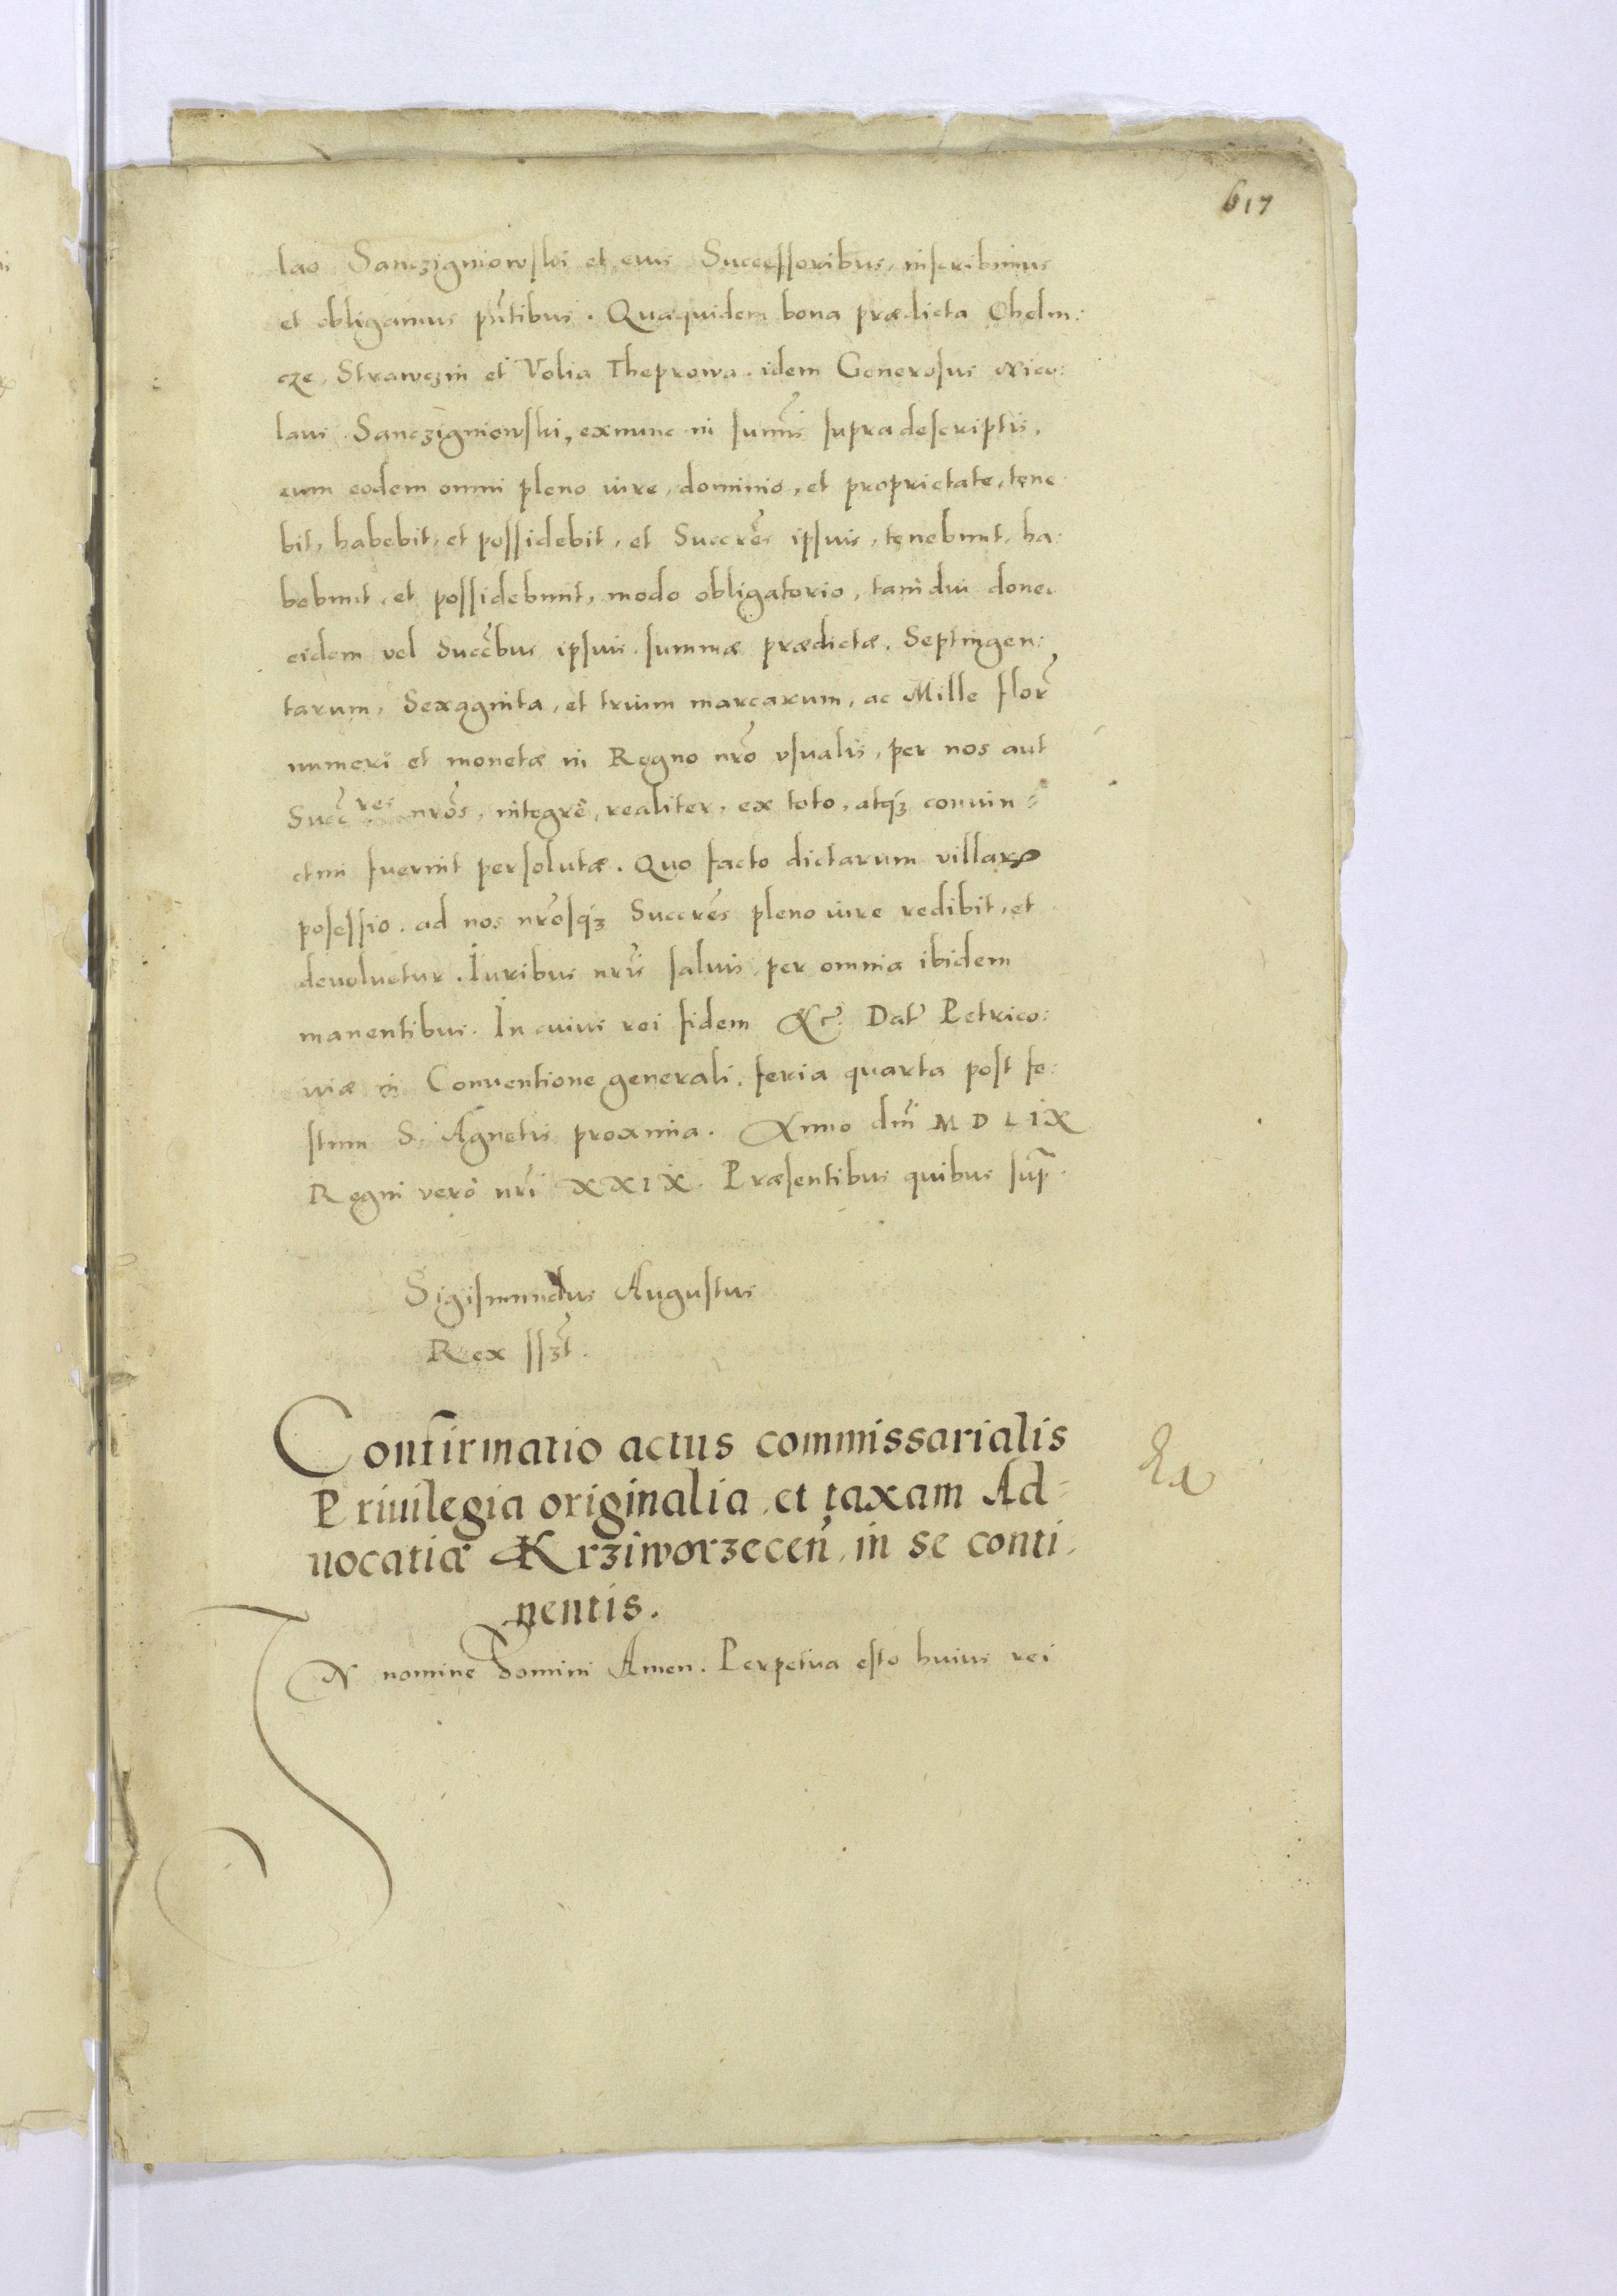 617
lao Sanczigniowski et eius Successoribus, inscribimus
et obligamus pñtibus. Quaquidem bona prædicta Chelm:
cze, Strawczin et Volia Theprowa. idem Generosus Nico:
laus Sanczigniowski, exnunc in summis supradescriptis,
cum eodem omni pleno iure, dominio, et proprietate, tene
bit, habebit, et possidebit, et Succres̃ ipsius, tenebunt, ha:
bebunt, et possidebunt, modo obligatorio, tam diu donec
eidem vel Succ̃bus ipsius summæ prædictæ. Septingen:
tarum, Sexaginta, et trium marcarum, ac Mille flor̃
numeri et monetæ in Regno nr̃o vsualis, per nos aut
Succ̃res nr̃os, integrè, realiter, ex toto, atqꝫ coniun
ctim fuerint persolutæ. Quo facto dictarum villarꝝ
posessio. ad nos nr̃osqꝫ Succres̃ pleno iure redibit, et
deuoluetur. Iuribus nr̃is saluis per omnia ibidem
manentibus. In cuius rei fidem &c. Dat̃ Petrico:
uiæ in Conuentione generali. feria quarta post fe:
stum S. Agnetis proxima. Anno dñi M D L I X
Regni verò nr̃i X X I X. Præsentibus quibus sup̃.
Sigismundus Augustus
Rex sszt̃.
Confirmatio actus commissarialis
Priuilegia originalia et taxam Ad=
uocatiæ Krziworzeceñ in se conti
nentis.
IN nomine Domini Amen. Perpetua esto huius rei